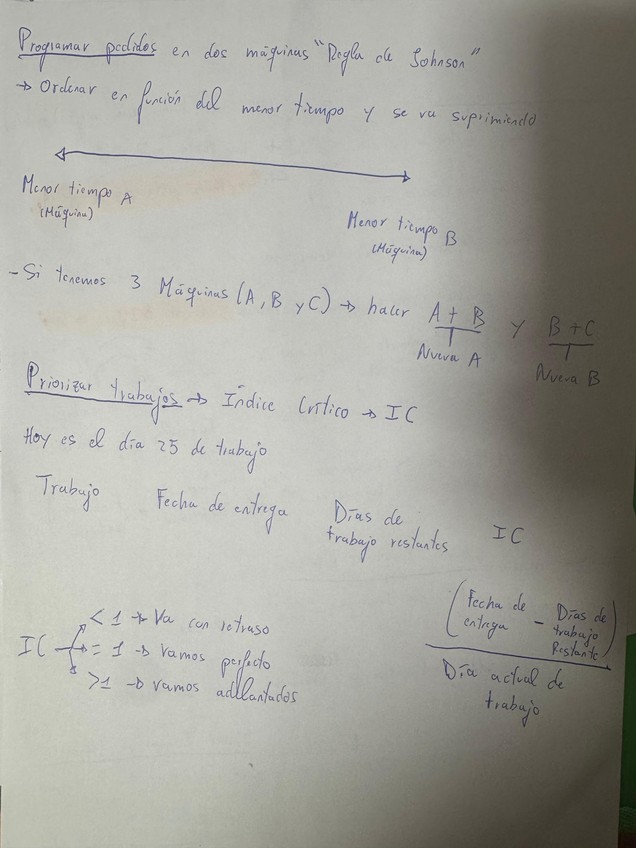 Programar pedidos en dos máquinas "Regla de Johnson"
→ Ordenar en función del menor tiempo y se va suprimiendo
Menor tiempo A
(Máquina)
Menor tiempo B
(Máquina)
- Si tenemos 3 Máquinas (A, B y C) → hacer A + B y B + C
Nueva A
Nueva B
Priorizar trabajos → Índice Crítico → IC
Hoy es el día 25 de trabajo
Trabajo Fecha de entrega Días de trabajo restantes IC
IC
< 1 → Va con retraso
= 1 → vamos perfecto
>1 → vamos adelantados
(Fecha de entrega - Días de trabajo Restante)
Día actual de
trabajo